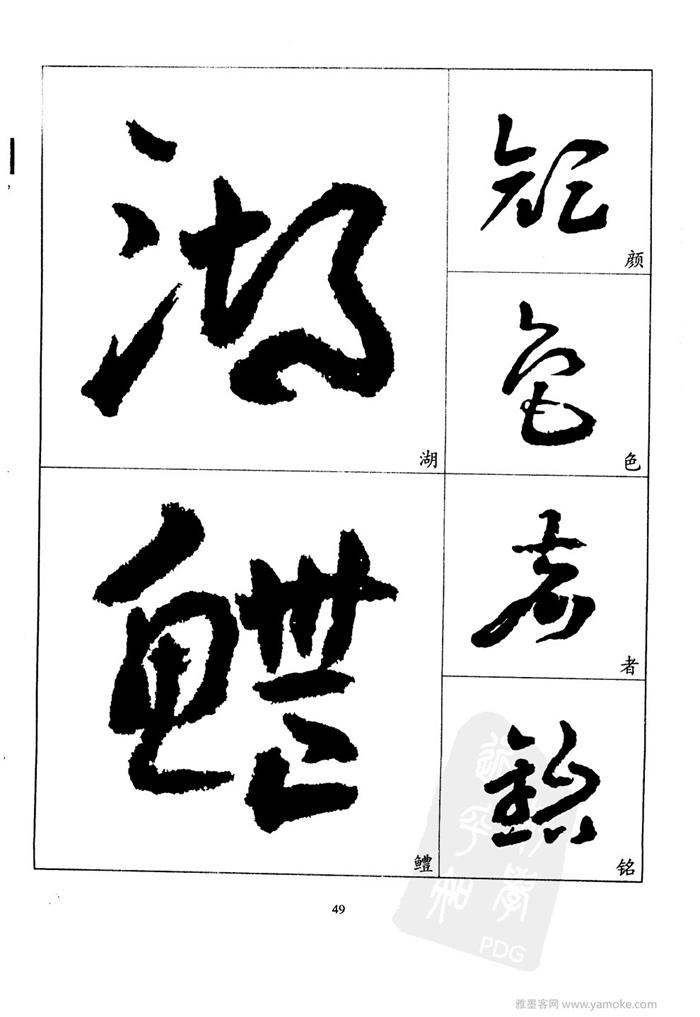 湖
鳢
颜
色
者
铭
49
PDG
雅墨客网 www.yamoke.com